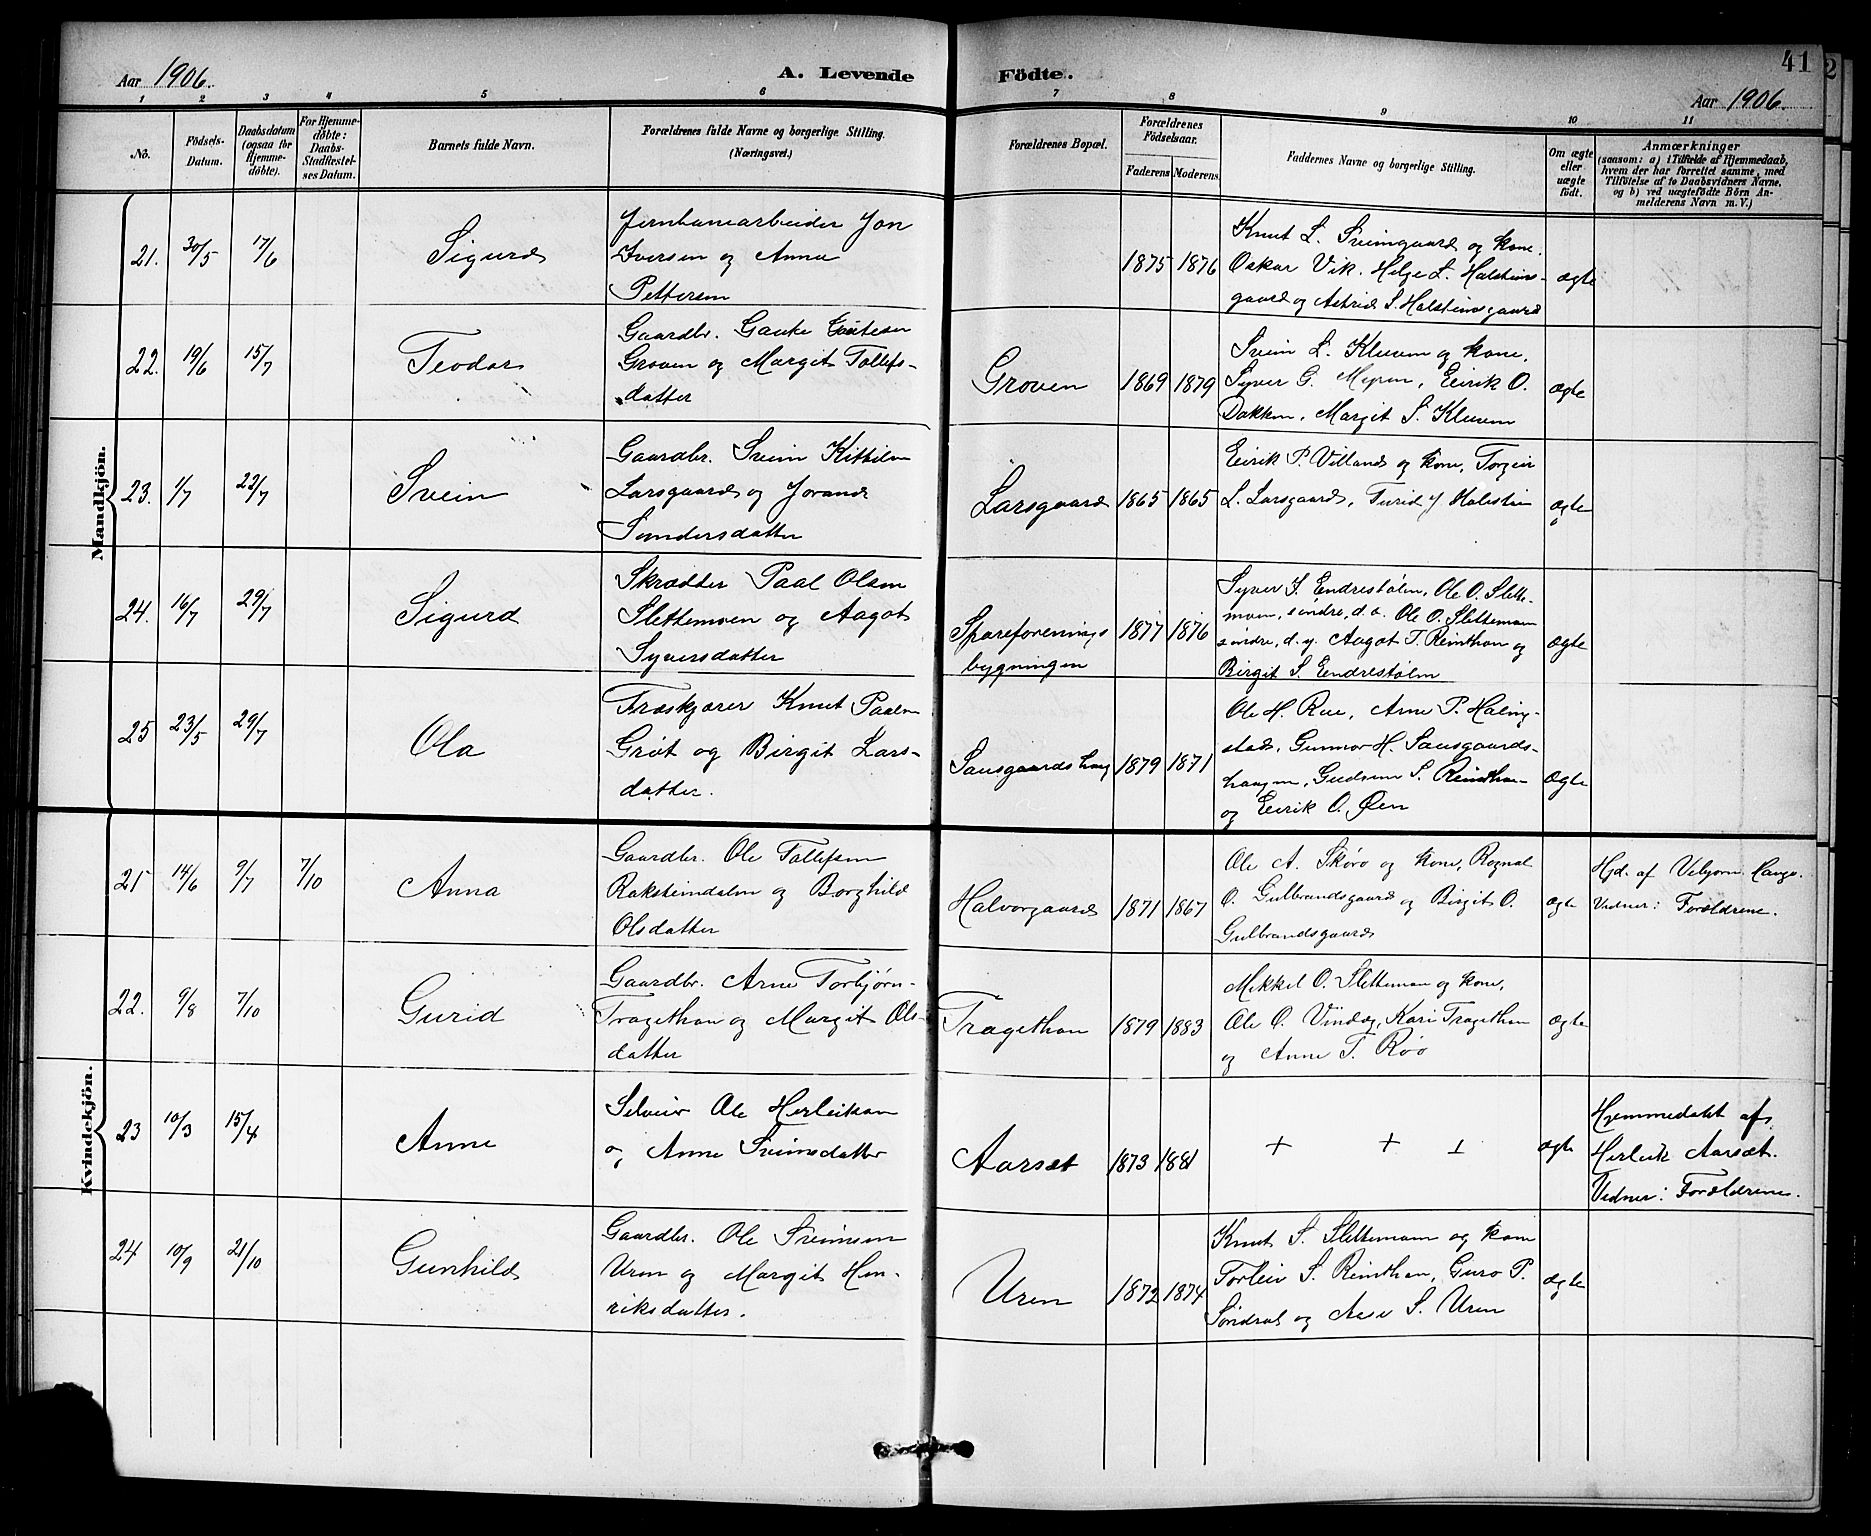 41
Aar 1906.
A. Levende Födte.
Aar 1906.
1 2 3 4 5 6 7 8 9 10 11
No.
Födsets-
Datum.
Daabsdatum
(ogsaa for
Hjemme-
døbte).
For Hjemme-
døbte:
Daabs-
Stadfæstel-
ses Datum.
Barnets fulde Navn.
Forældrenes fulde Navne og borgerlige Stilling.
(Næringsvei.)
Forældrenes Bopæl.
Forældrenes
Födselsaar.
Faderens Moderens
Faddernes Navne og borgerlige Stilling.
Om ægte
eller
uægte
født.
Anmærkninger
(saasom: a) i Tilfælde af Hjemmedaab,
hvem der har forrettet samme, med
Tilføielse af to Daabsvidners Navne,
og b) ved uægtefødte Børn An-
melderens Navn m. V.)
Mandkjön.
21. 30/5 17/6
Sigurd
Jernbanearbeider Jon
Iversen og Anna
Pettersen
1875 1876
Knut L. Sveingaard og kone.
Oskar Vik. Helge L. Halsteins-
gaard og Astrid S. Halsteinsgaard
ægte
22. 19/6 15/7
Teodor
Gaardbr. Gauke Gautesen
Groven og Margit Tollefs-
datter
Groven
1869 1879
Svein L. Kluven og kone,
Syver G. Myren, Eirik O.
Dokken, Margit S. Kluven
ægte
23. 1/7 22/7
Svein
Gaardbr. Svein Kittilsn
Larsgaard og Jorand
Sandersdatter
Larsgaard
1865 1865
Eirik P. Villand og kone, Torgeir
L. Larsgaard, Turid Halstein
ægte
24. 16/7 29/7
Sigurd
Skrædder Paal Olsen
Slettemoen og Aagot
Syversdatter
Spareforenings
bygningen
1877 1876
Syver S. Endrestølen, Ole O. Slette-
moen, søndre, d.æ. Ole O. Slettemoen
søndre, d. y. Aagot T. Reinthon og
Birgit S. Endrestølen
ægte
25 23/5 29/7
Ola
Træskjærer Knut Paalsn
Grøt og Birgit Lars-
datter.
Sausgaardshaug
1879 1871
Ole H. Rue, Arne P. Haling-
stad, Gunnor H. Sausgaards-
haugen, Gudrun S. Reinthon
og Eirik O. Øen
ægte
Kvindekjön.
21 14/6 9/7 7/10
Anna
Gaardbr. Ole Tollefsen
Roksteindalen og Borghild
Olsdatter
Halvorgaard
1871 1867
Ole A. Skøro og kone, Rognal
O. Gulbrandsgaard og Birgit O.
Gulbrandsgaard
ægte
Hjd. af Vebjørn Hauge.
Vidner: Forældrene.
22. 9/8 7/10
Gurid
Gaardbr. Arne Torbjørn-
Tragethon og Margit Ols-
datter
Tragethon
1879 1883
Mikkel O. Slettemoen og kone,
Ole O. Vindeg, Kari Tragethon
og Anne T. Røo
ægte
23 10/3 15/4
Anne
Selveier Ole Herleiksen
og Anne Sveinsdatter
Aarset
1873 1881
+ + +
ægte
Hjemmedøbt af
Herleik Aarsæt.
Vidner: Forældrene.
24 10/9 21/10
Gunhild
Gaardbr. Ole Sveinsen
Uren og Margit Hen-
riksdatter.
Uren
1872 1874
Knut S. Slettemoen og kone
Torleiv S. Reinthon, Guro P.
Søndral og Aase S. Uren
ægte